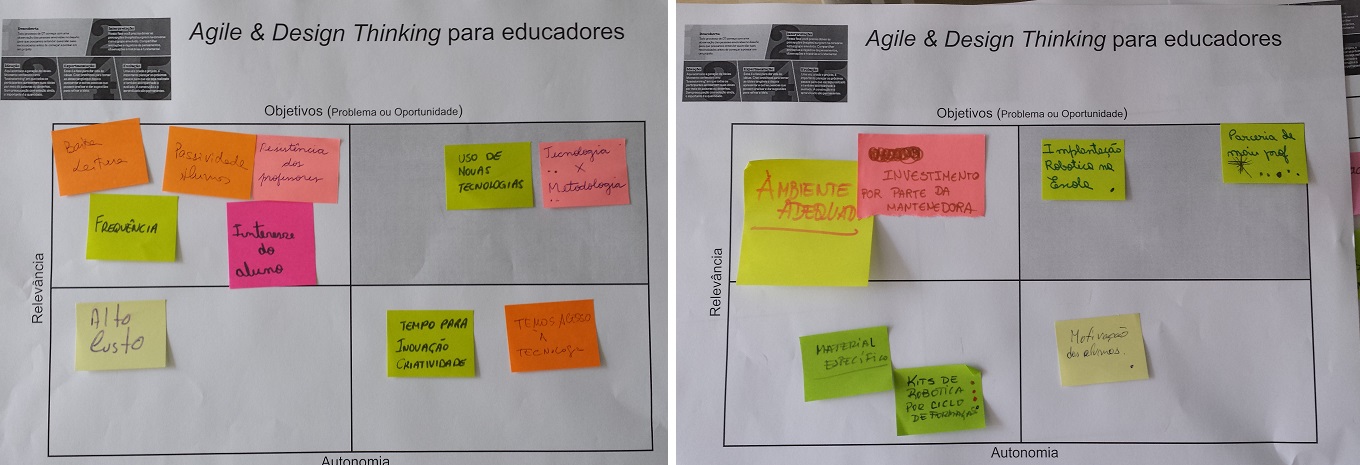 Agile & Design Thinking para educadores
Objetivos (Problema ou Oportunidade)
Relevância
Baixa
Leitura
Passividade
Alunos
Resistência
dos
professores
FREQUÊNCIA
Interesse
do
aluno
USO DE
NOVAS
TECNOLOGIAS
Tecnologia
X
Metodologia
Alto
Custo
TEMPO PARA
INOVAÇÃO
CRIATIVIDADE
TEMOS ACESSO
À
TECNOLOGIA
Autonomia
Agile & Design Thinking para educadores
Objetivos (Problema ou Oportunidade)
Relevância
AMBIENTE
ADEQUADO
INVESTIMENTO
POR PARTE DA
MANTENEDORA
Implantação
Robotica na
Escola.
Parceria de
mais prof
MATERIAL
ESPECÍFICO
KITS DE
ROBOTICA
POR CICLO
DE FORMAÇÃO
Motivação
dos alunos.
Autonomia